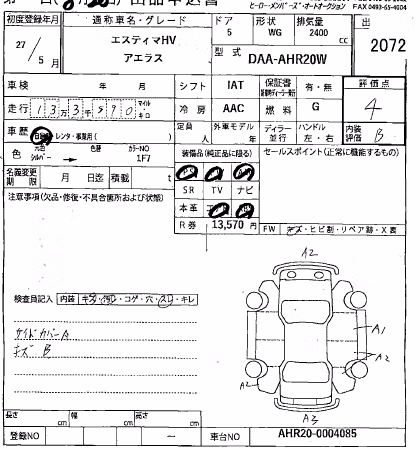 出品申込書
ヒーロー・メンバーズ・オートオークション FAX 0493-65-4004
初度登録年月 通称車名・グレード ドア 形状 排気量 出
27/5月 エスティマHV アエラス 5 WG 2400 cc 2072
型式 DAA-AHR20W
車検 年 月 シフト IAT 保証書 有・無 評価点
走行 133590 マイル キロ 冷房 AAC 燃料 G 4
車歴 レンタ・事業用( ) 定員 人 外車モデル 年 ディラー 並行 ハンドル 左・右 内装評価 B
色 元色 シルバー → 色替 カラーNO 1F7
装備品(純正品に限る) セールスポイント(正常に機能するもの)
名義変更期限 月 日迄 積載 t
SR TV ナビ
注意事項(欠品・修復・不具合箇所および状態)
本革
R券 13,570
FW キズ・ヒビ割・リペア跡・X表
A2
検査員記入 内装 キズ・汚レ・コゲ・穴・スレ・キレ
サイドカバーA
キズ B
A1
A2
A2
A3
長さ cm 幅 cm 高さ cm
登録NO ー 車台NO AHR20-0004085